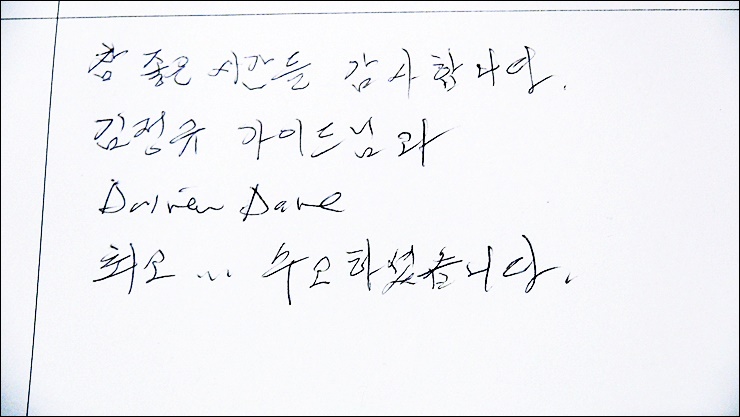 참 좋은 시간들 감사합니다.
김정규 가이드님과
Driver Dave
최고... 수고하셨습니다.